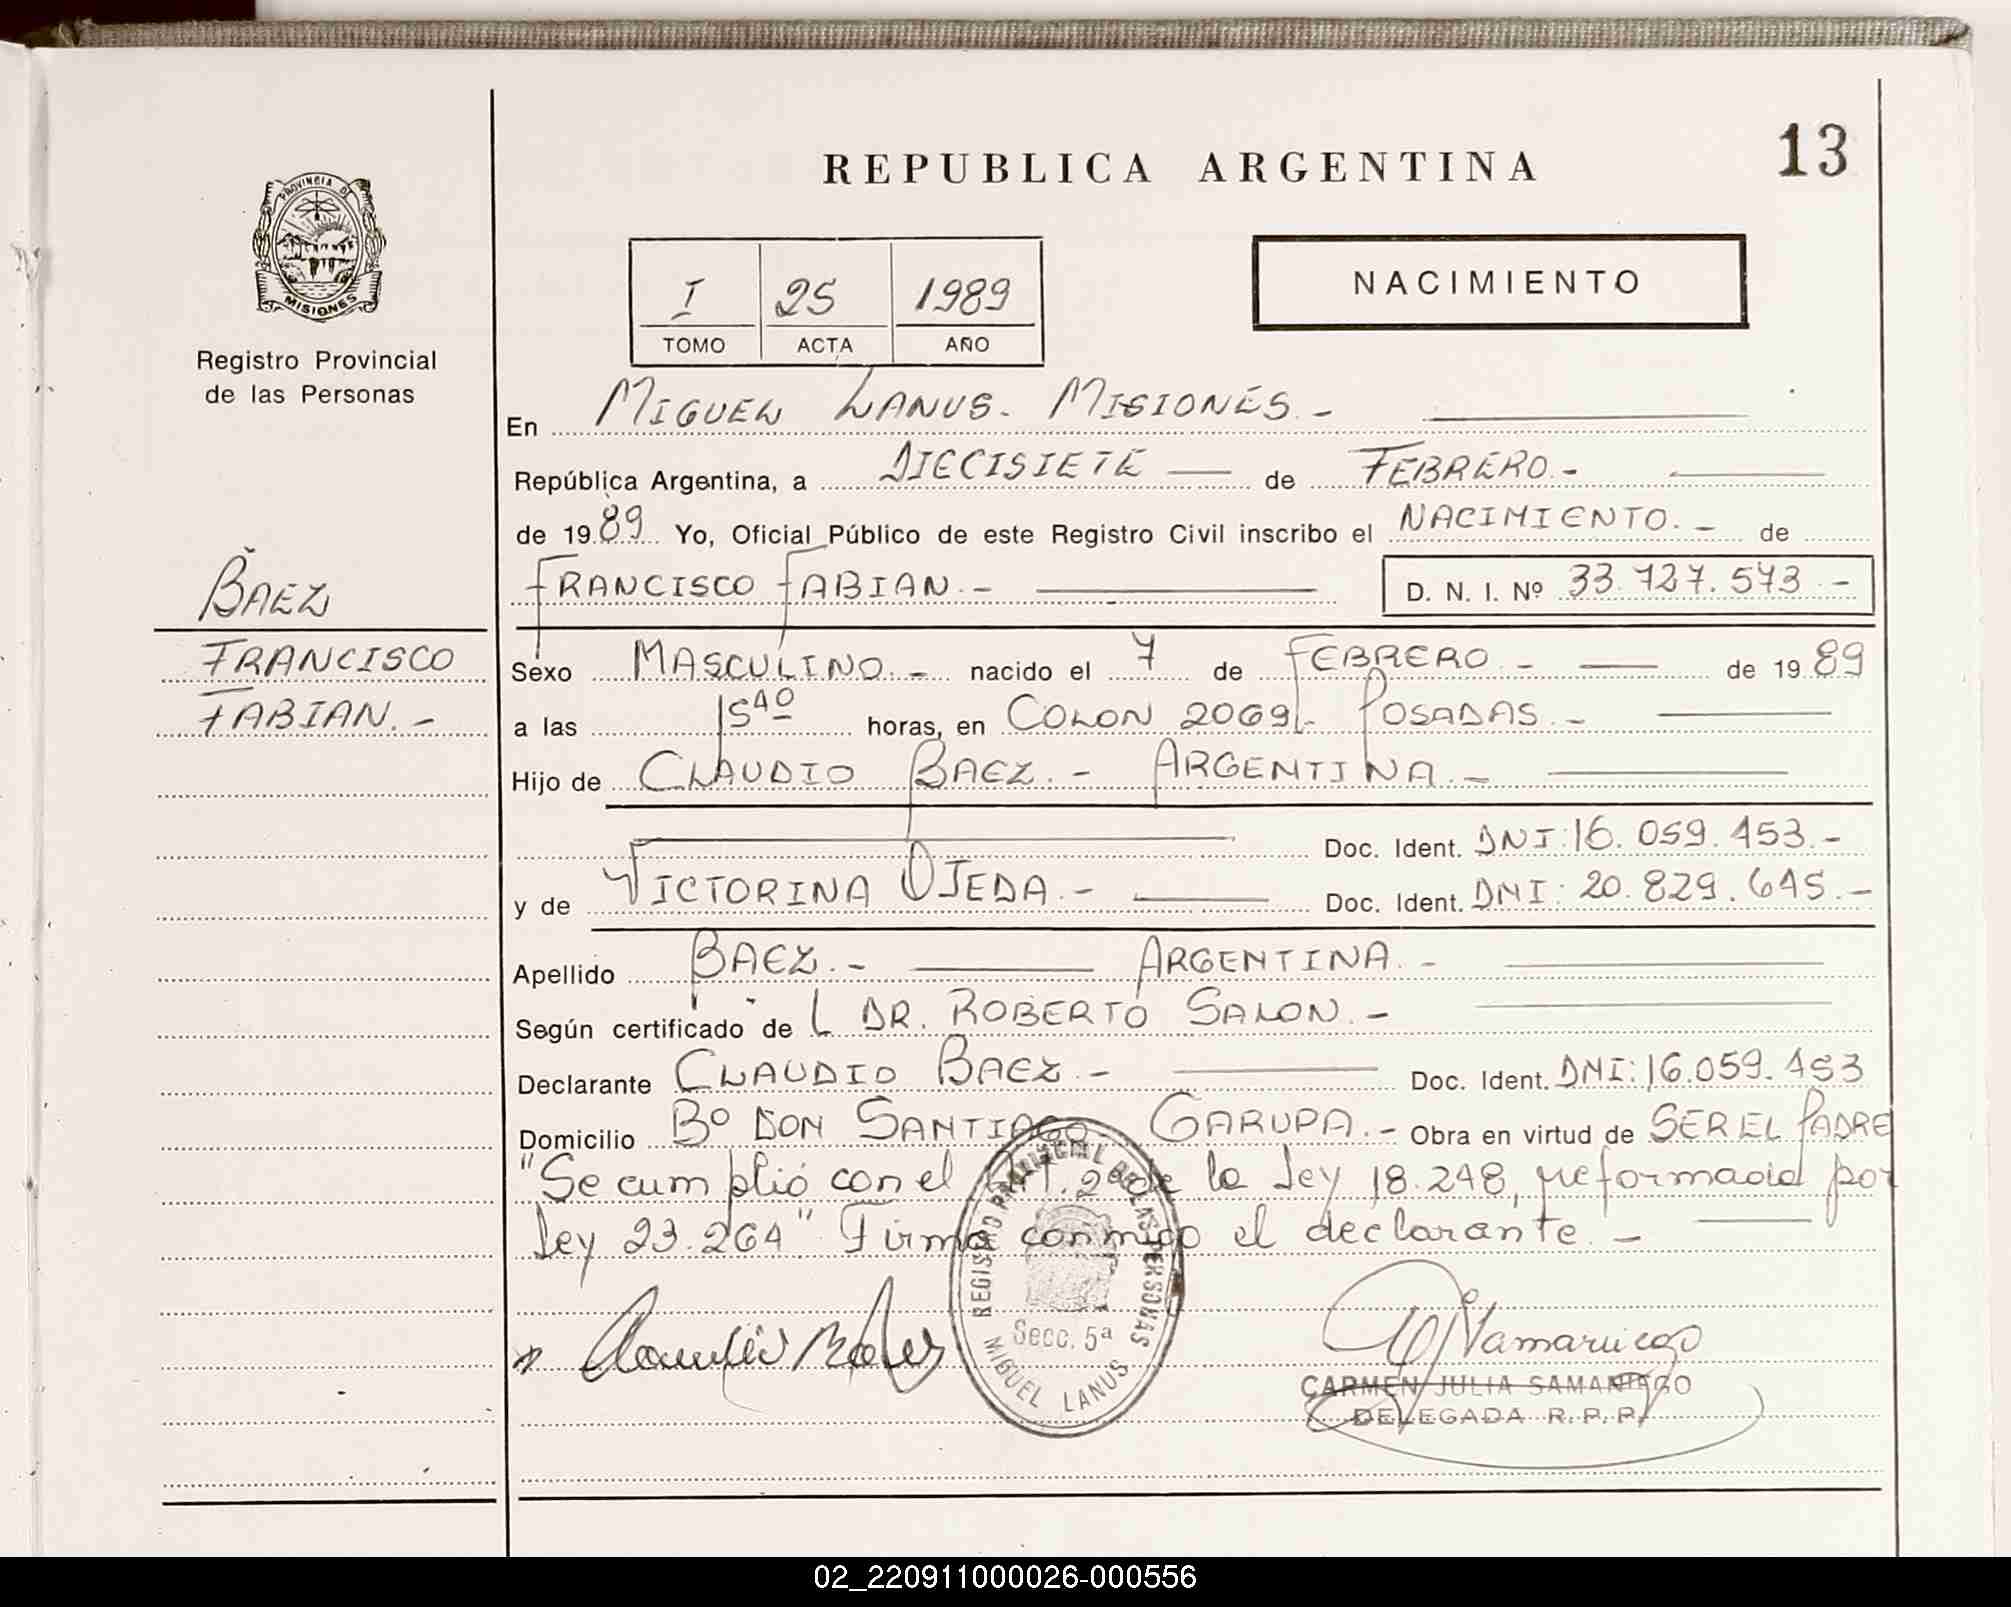 13
REPUBLICA ARGENTINA
PROVINCIA DE
MISIONES
Registro Provincial
de las Personas
I 25 1989
TOMO ACTA AÑO
NACIMIENTO
En MIGUEL LANUS. MISIONES.-
República Argentina, a DIECISIETE de FEBRERO.-
de 1989 Yo, Oficial Público de este Registro Civil inscribo el NACIMIENTO.- de
FRANCISCO FABIAN.- D. N. I. Nº 33.727.573.-
BAEZ
FRANCISCO
FABIAN.-
Sexo MASCULINO.- nacido el 7 de FEBRERO.- de 1989
a las 15 40 horas, en COLON 2069.- POSADAS.-
Hijo de CLAUDIO BAEZ.- ARGENTINA.-
Doc. Ident. DNI:16.059.453.-
y de VICTORINA OJEDA.- Doc. Ident. DNI: 20.829.645.-
Apellido BAEZ.- ARGENTINA.-
Según certificado de L DR. ROBERTO SALON.-
Declarante CLAUDIO BAEZ.- Doc. Ident. DNI:16.059.453
Domicilio Bº DON SANTIAGO- GARUPA.- Obra en virtud de SER EL PADRE
"Se cumplió con el Art. 2º de la Ley 18.248, reformada por
Ley 23.264" Firma conmigo el declarante.-
REGISTRO PROVINCIAL DE LAS PERSONAS
Secc. 5ª
MIGUEL LANUS
CARMEN JULIA SAMANIEGO
DELEGADA R.P.P.
02_220911000026-000556